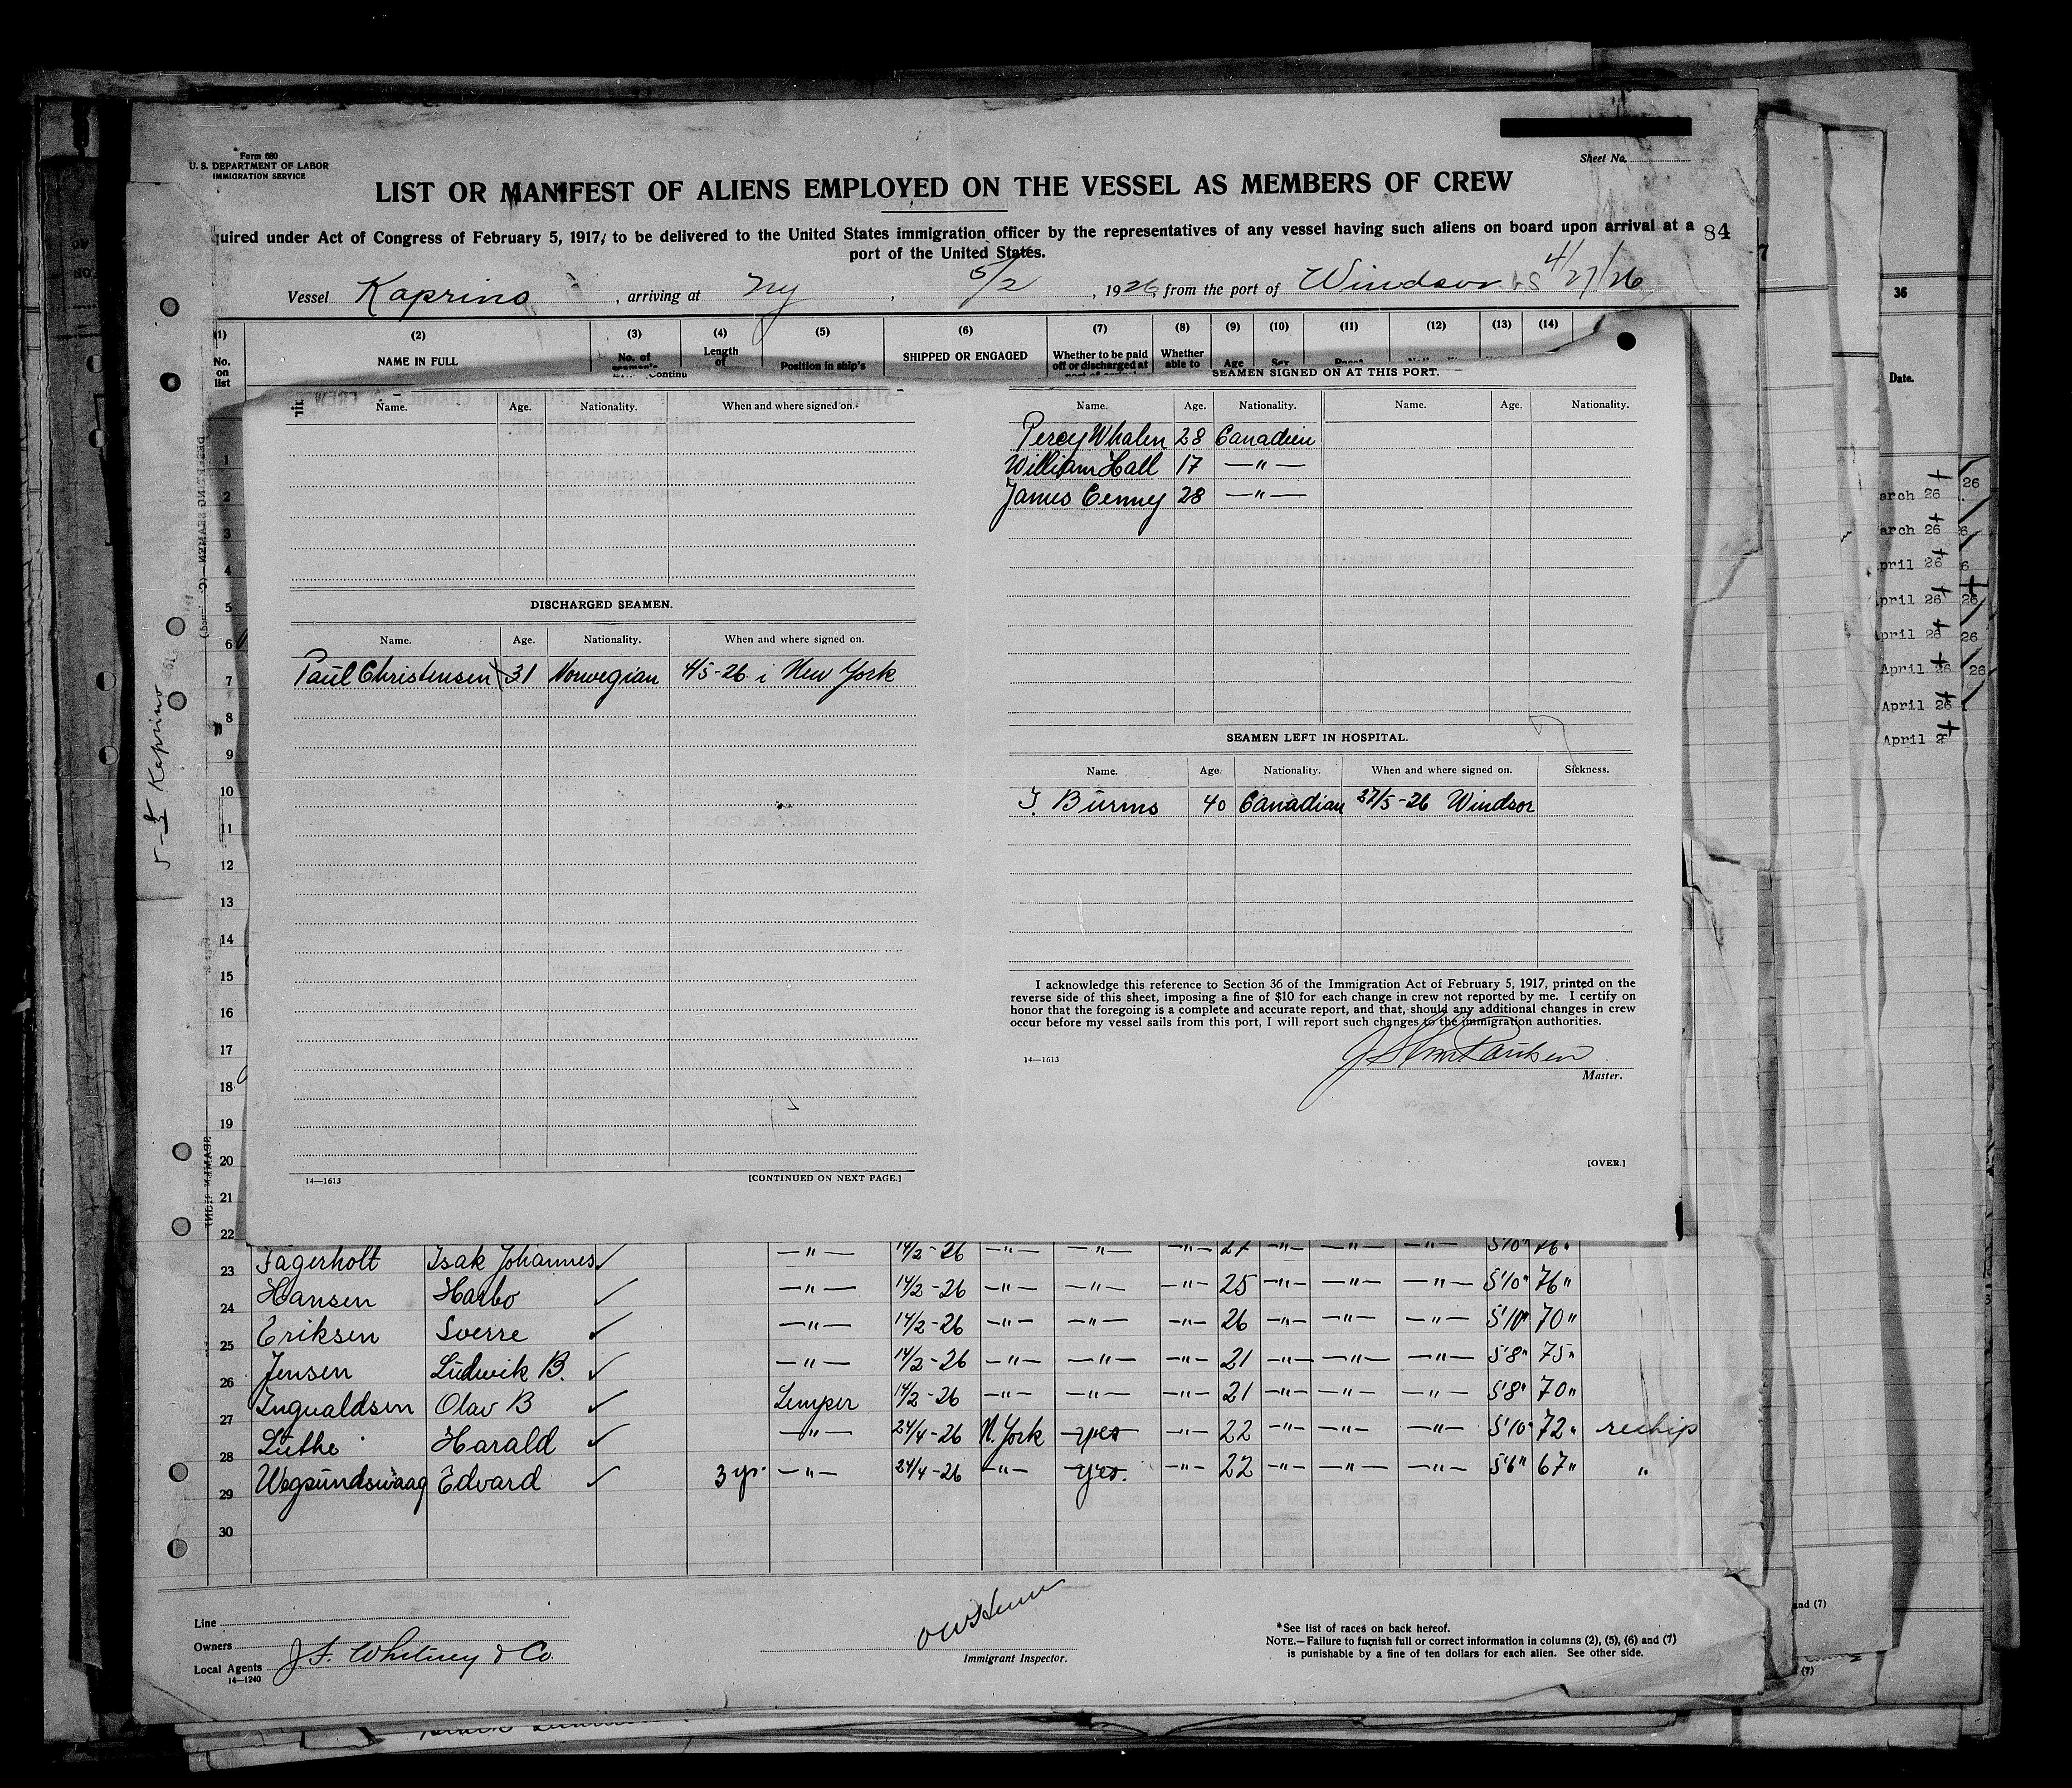 Form 680
U. S. DEPARTMENT OF LABOR
IMMIGRATION SERVICE
Sheet No.
LIST OR MANIFEST OF ALIENS EMPLOYED ON THE VESSEL AS MEMBERS OF CREW
quired under Act of Congress of February 5, 1917, to be delivered to the United States immigration officer by the representatives of any vessel having such aliens on board upon arrival at a 84
port of the United States.
Vessel Kaprino, arriving at Ny, 5/2, 1926, from the port of Windsor NS 4/27/26
(1) (2) (3) (4) (5) (6) (7) (8) (9) (10) (11) (12) (13) (14)
No. on list NAME IN FULL No. of Length of Position in ship's SHIPPED OR ENGAGED Whether to be paid off or discharged at Whether able to Age Sex
36
Date.
SEAMEN SIGNED ON AT THIS PORT.
Name. Age. Nationality. When and where signed on.
Name. Age. Nationality. Name. Age. Nationality.
Percy Whalen 28 Canadien
William Hall 17 —"—
James Cenney 28 —"—
DISCHARGED SEAMEN.
Name. Age. Nationality. When and where signed on.
Paul Christensen 31 Norwegian 4/5-26 i New York
SEAMEN LEFT IN HOSPITAL.
Name. Age. Nationality. When and where signed on. Sickness.
J. Burns 40 Canadian 27/5-26 Windsor
I acknowledge this reference to Section 36 of the Immigration Act of February 5, 1917, printed on the
reverse side of this sheet, imposing a fine of $10 for each change in crew not reported by me. I certify on
honor that the foregoing is a complete and accurate report, and that, should any additional changes in crew
occur before my vessel sails from this port, I will report such changes to the immigration authorities.
14—1613
Master.
[OVER.]
14—1613
[CONTINUED ON NEXT PAGE.]
5-4 Kaprino
1
2
3
4
5
6
7
8
9
10
11
12
13
14
15
16
17
18
19
20
21
22
23 Fagerholt Isak Johannes —"— 14/2-26 —"— —"— —"— 27 —"— —"— —"— 5'10" 76"
24 Hansen Harbo —"— 14/2-26 —"— —"— —"— 25 —"— —"— —"— 5'10" 76"
25 Eriksen Sverre —"— 14/2-26 —"— —"— —"— 26 —"— —"— —"— 5'10" 70"
26 Jensen Ludwik B. —"— 14/2-26 —"— —"— —"— 21 —"— —"— —"— 5'8" 75"
27 Ingvaldsen Olav B Lemper 14/2-26 —"— —"— —"— 21 —"— —"— —"— 5'8" 70"
28 Luthe Harald —"— 24/4-26 N. York yes —"— 22 —"— —"— —"— 5'10" 72" reship
29 Wegsundsvaag Edvard 3 yr. —"— 24/4-26 —"— yes. —"— 22 —"— —"— —"— 5'6" 67" "
30
arch 26
arch 26
pril 26
pril 26
pril 26
April 26
April 26
April 2
Line
Owners
Local Agents J. F. Whitney & Co.
14—1240
Immigrant Inspector.
*See list of races on back hereof.
NOTE.—Failure to furnish full or correct information in columns (2), (5), (6) and (7)
is punishable by a fine of ten dollars for each alien. See other side.
and (7)
(7)